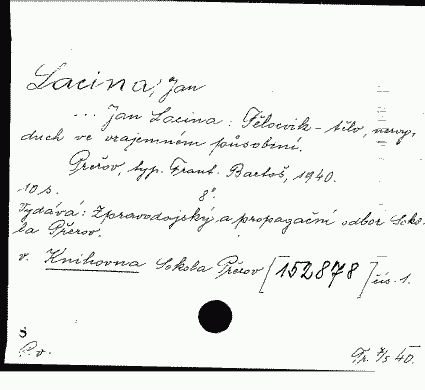 Lacina, Jan
... Jan Lacina: Tělocvik - tělo, nervy,
duch ve vzájemném působení.
Přerov, typ. Frant. Bartoš, 1940.
10 s. 8°.
Vydává: Zpravodajský a propagační odbor Soko-
la Přerov.
v. Knihovna Sokola Přerov [152878] čís. 1.
S
P. v.
40.